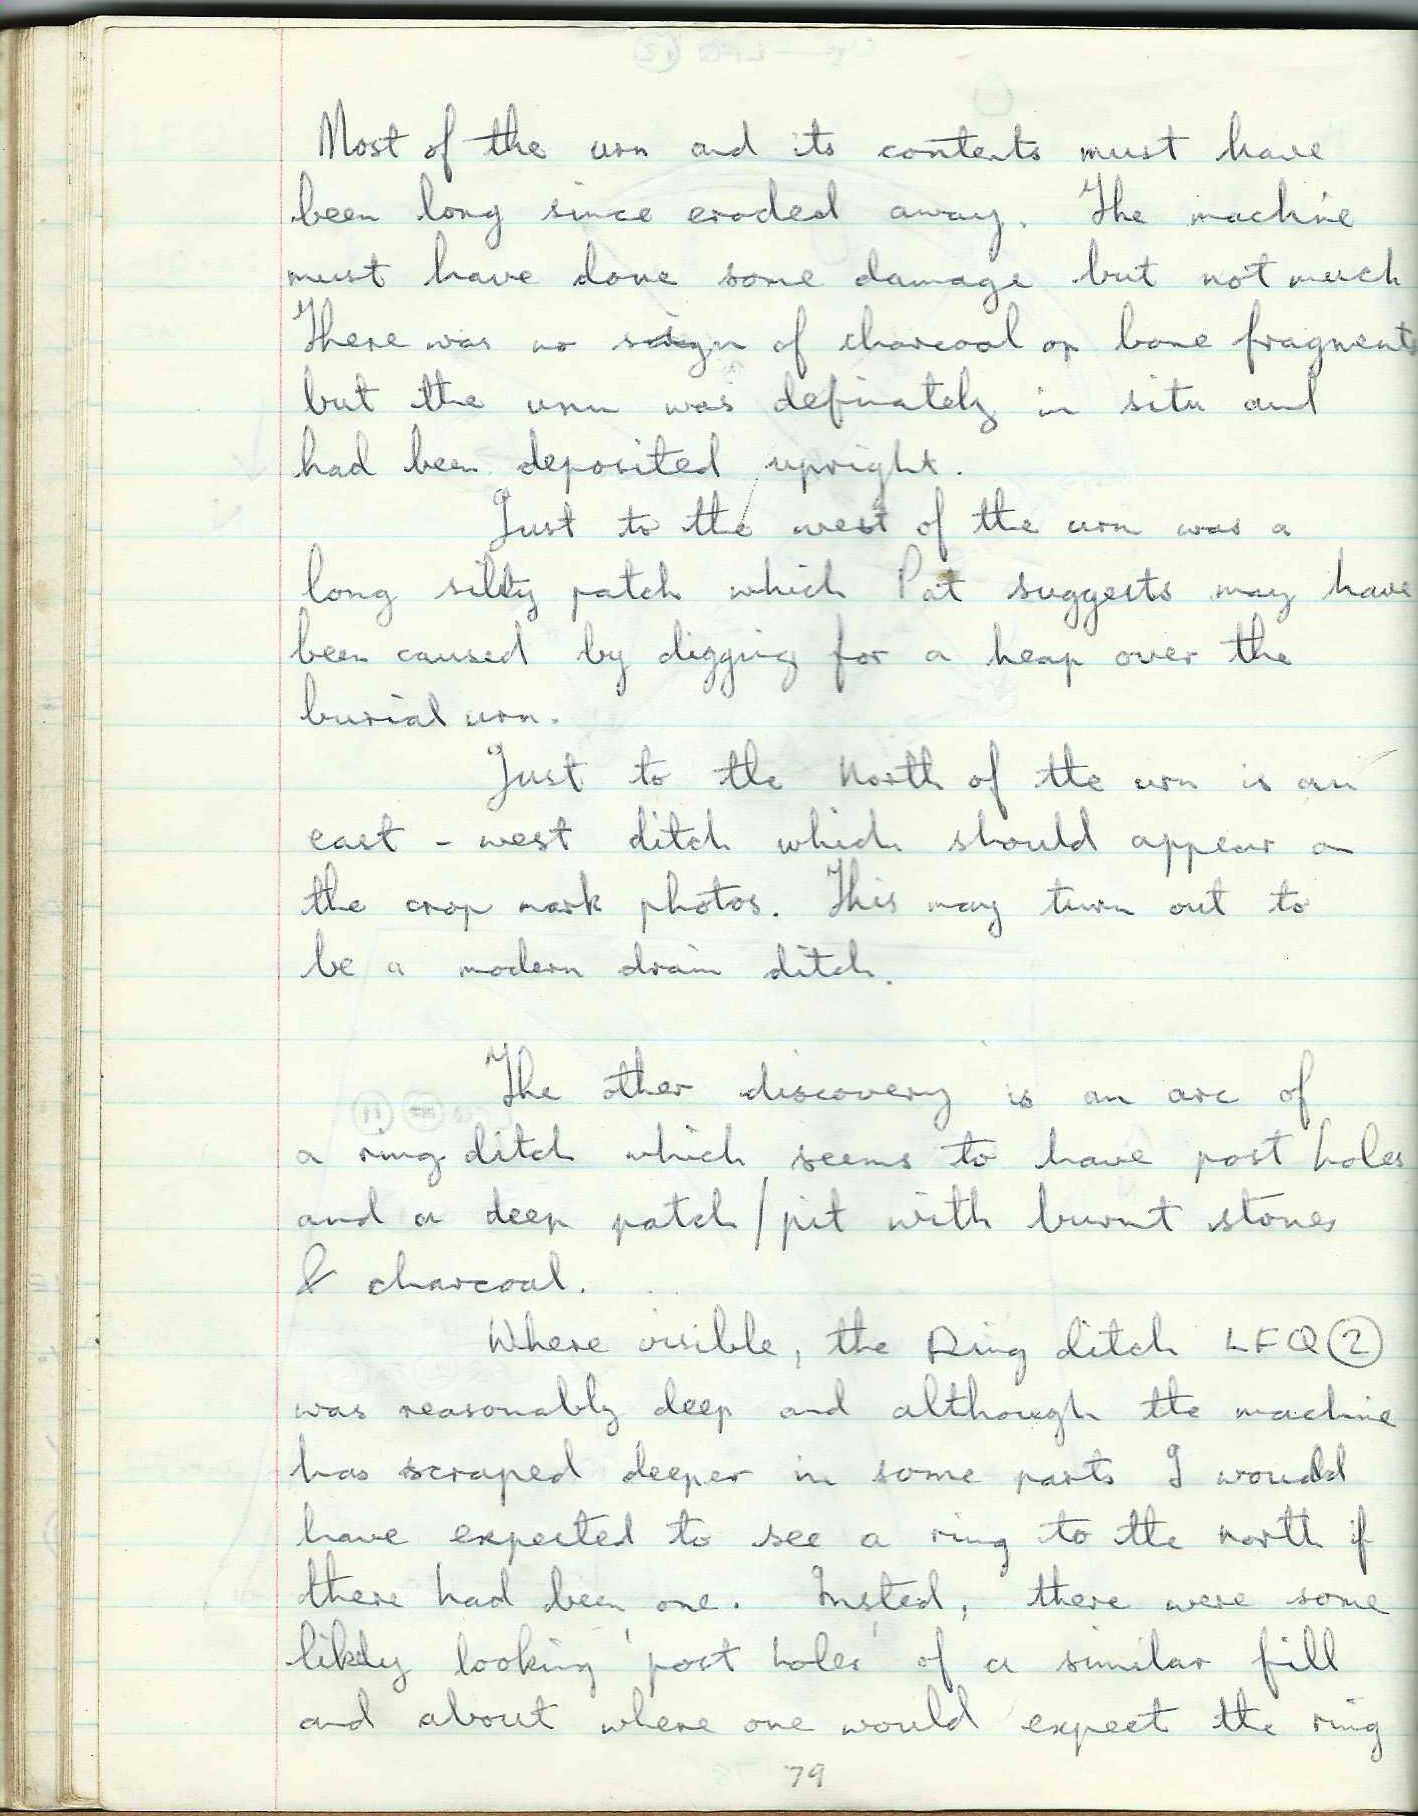 Most of the urn and its contents must have
been long since eroded away. The machine
must have done some damage but not much
There was no sign of charcoal or bone fragments
but the urn was definately in situ and
had been deposited upright.
Just to the west of the urn was a
long silty patch which Pat suggests may have
been caused by digging for a heap over the
burial urn.
Just to the North of the urn is an
east - west ditch which should appear on
the crop mark photos. This may turn out to
be a modern drain ditch.
The other discovery is an arc of
a ring ditch which seems to have post holes
and a deep patch/pit with burnt stones
& charcoal.
Where visible, the Ring ditch LFQ ②
was reasonably deep and although the machine
has scraped deeper in some parts I would
have expected to see a ring to the north if
there had been one. Insted, there were some
likely looking 'post holes' of a similar fill
and about where one would expect the ring
79